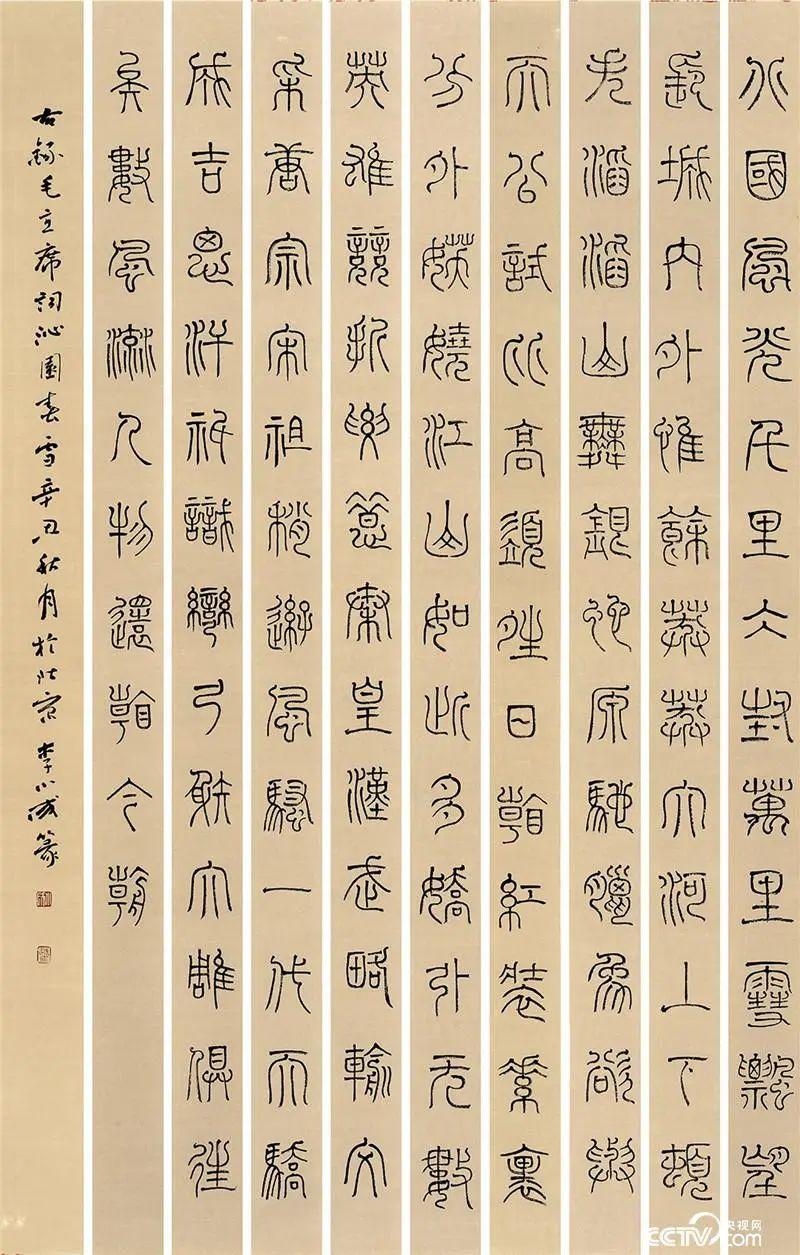 北國風光千里冰封萬里雪飄望
長城內外惟餘莽莽大河上下頓
失滔滔山舞銀蛇原馳蠟象欲與
天公試比高須晴日看紅裝素裹
分外妖嬈江山如此多嬌引无數
英雄競折腰惜秦皇漢武略輸文
采唐宗宋祖稍遜風騷一代天驕
成吉思汗祇識彎弓射大雕俱往
矣數風流人物還看今朝
右錄毛主席詞沁園春雪辛丑秋月於北京李成篆
央视网
CCTV.com